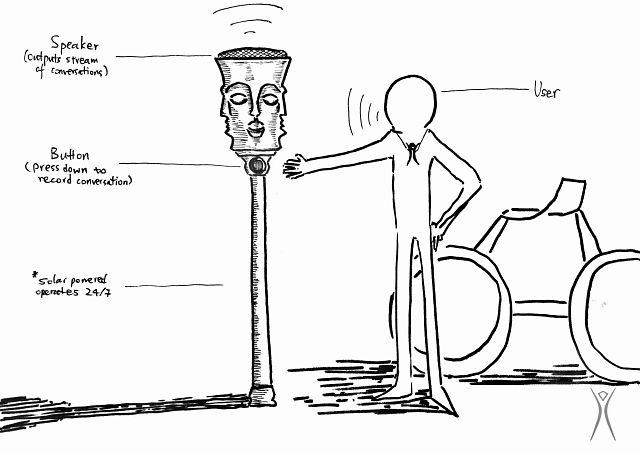 Speaker
(outputs stream
of conversations)
User
Button
(press down to
record conversation)
*Solar powered
operates 24/7